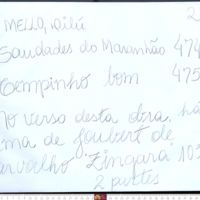 2
MELLO, Dilú
Saudades do Maranhão 474
Tempinho bom 475
No verso desta obra, há
uma de Joubert de
Carvalho "Zingara" 103
2 partes